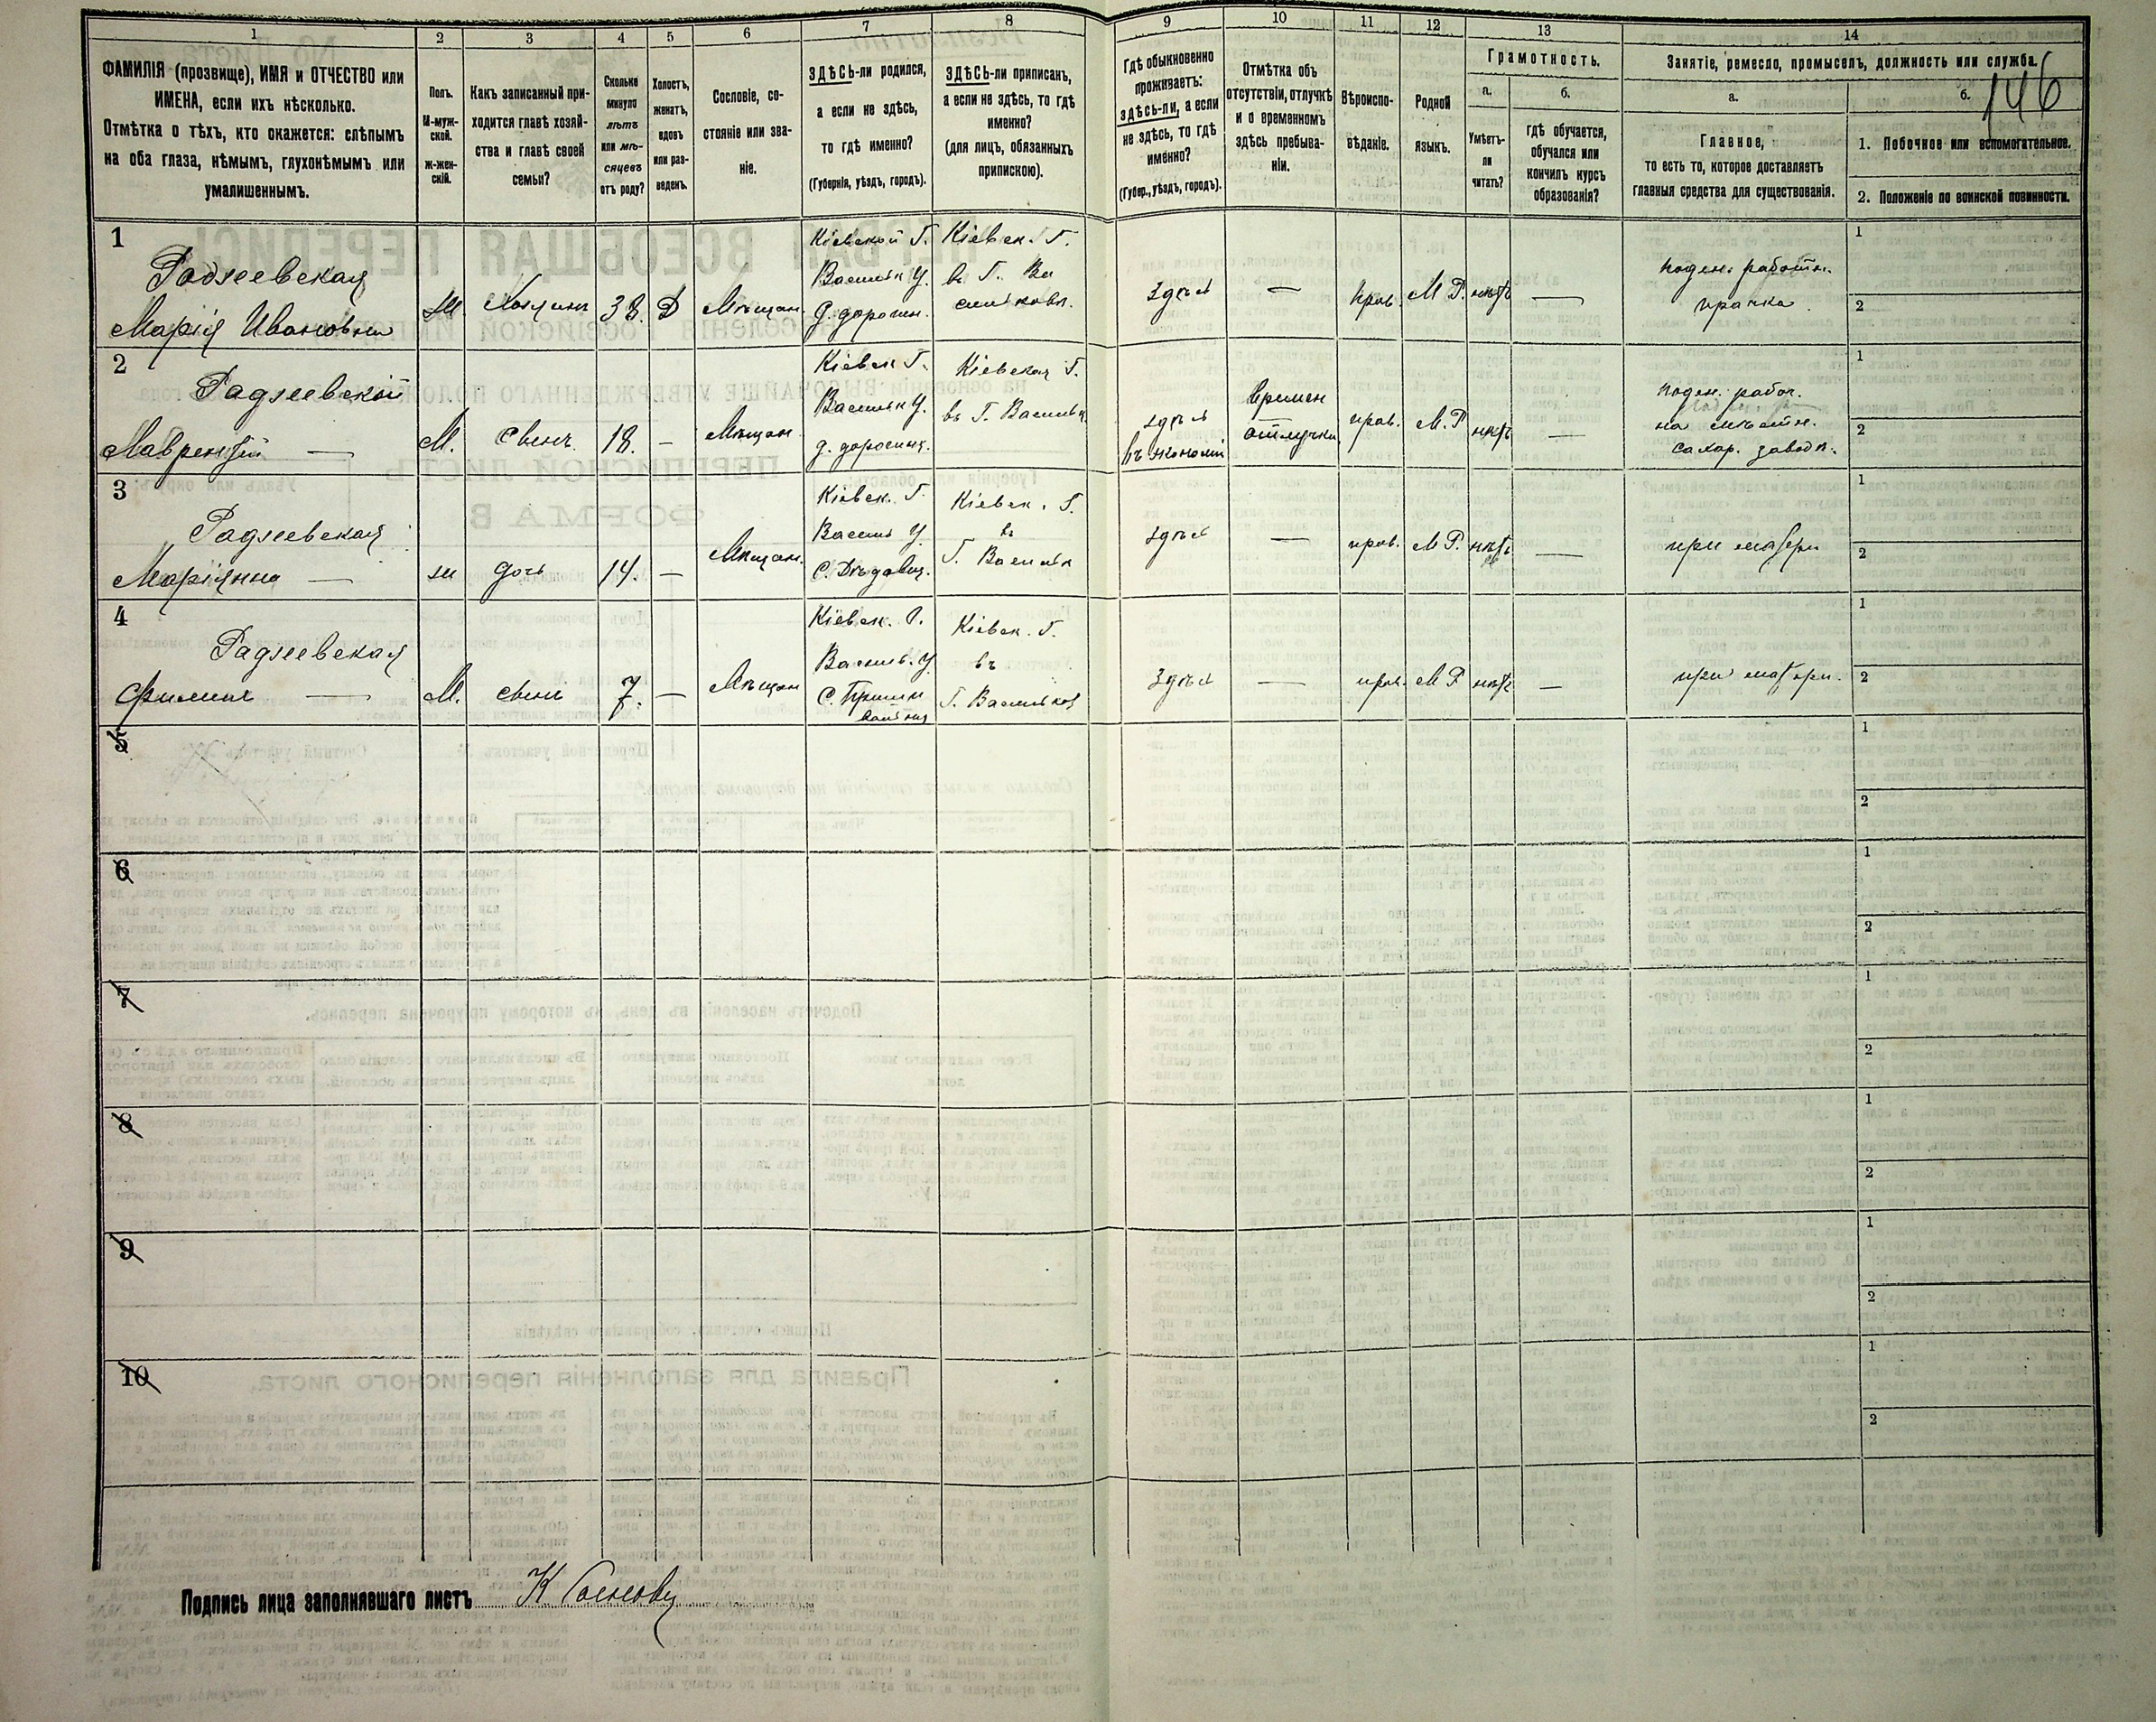 1 2 3 4 5 6 7 8 9 10 11 12 13 14
ФАМИЛІЯ (прозвище), ИМЯ и ОТЧЕСТВО или
ИМЕНА, если ихъ нѣсколько.
Отмѣтка о тѣхъ, кто окажется: слѣпымъ
на оба глаза, нѣмымъ, глухонѣмымъ или
умалишеннымъ.
Полъ.
М-муж-
ской.
ж-жен-
скій.
Какъ записанный при-
ходится главѣ хозяй-
ства и главѣ своей
семьи?
Сколько
минуло
лѣтъ
или мѣ-
сяцевъ
отъ роду?
Холостъ,
женатъ,
вдовъ
или раз-
веденъ.
Сословіе, со-
стояніе или зва-
ніе.
ЗДѢСЬ-ли родился,
а если не здѣсь,
то гдѣ именно?
(Губернія, уѣздъ, городъ).
ЗДѢСЬ-ли приписанъ,
а если не здѣсь, то гдѣ
именно?
(для лицъ, обязанныхъ
припискою).
Гдѣ обыкновенно
проживаетъ:
здѣсь-ли, а если
не здѣсь, то гдѣ
именно?
(Губер., уѣздъ, городъ).
Отмѣтка объ
отсутствіи, отлучкѣ
и о временномъ
здѣсь пребыва-
ніи.
Вѣроиспо-
вѣданіе.
Родной
языкъ.
Грамотность.
а.
Умѣетъ-
ли
читать?
б.
гдѣ обучается,
обучался или
кончилъ курсъ
образованія?
Занятіе, ремесло, промыселъ, должность или служба.
а.
Главное,
то есть то, которое доставляетъ
главныя средства для существованія.
б.
146
1. Побочное или вспомогательное.
2. Положеніе по воинской повинности.
1
Радзеевская
Марія Ивановна
38. В
Мѣщан.
Кіевской Г.
Васильк У.
Кіевск. Г.
въ Г. Ва
сильковъ.
здѣсь
—
прав.
М Р.
нѣтъ
—
поден. работн.
прачка
1
2
2
Радзеевскій
Лаврентій —
М.
сынъ
18.
—
Мѣщан.
Кіевск Г.
Васильк У.
Кіевская Г.
въ Г. Васильк.
здѣсь
въ экономіи
Времен
отлучка
прав.
М. Р
нѣтъ
—
поден. рабоч.
на мѣстн.
сахар. заводѣ.
1
2
3
Радзеевская
Маріанна —
дочь
14.
—
Мѣщан.
Кіевск. Г.
Васильк У.
Кіевск. Г.
въ
Г. Васильк
здѣсь
—
прав.
М Р.
нѣтъ
—
при матери
1
2
4
Радзеевская
Филипъ —
М.
сынъ
7.
—
Мѣщан
Кіевск. Г.
Васильк. У
Кіевск. Г.
въ
Г. Васильков
Здѣсь
—
прав.
М Р
нѣтъ
—
при матери.
1
2
5
1
2
6
1
2
7
1
2
8
1
2
9
1
2
10
1
2
Подпись лица заполнявшаго листъ